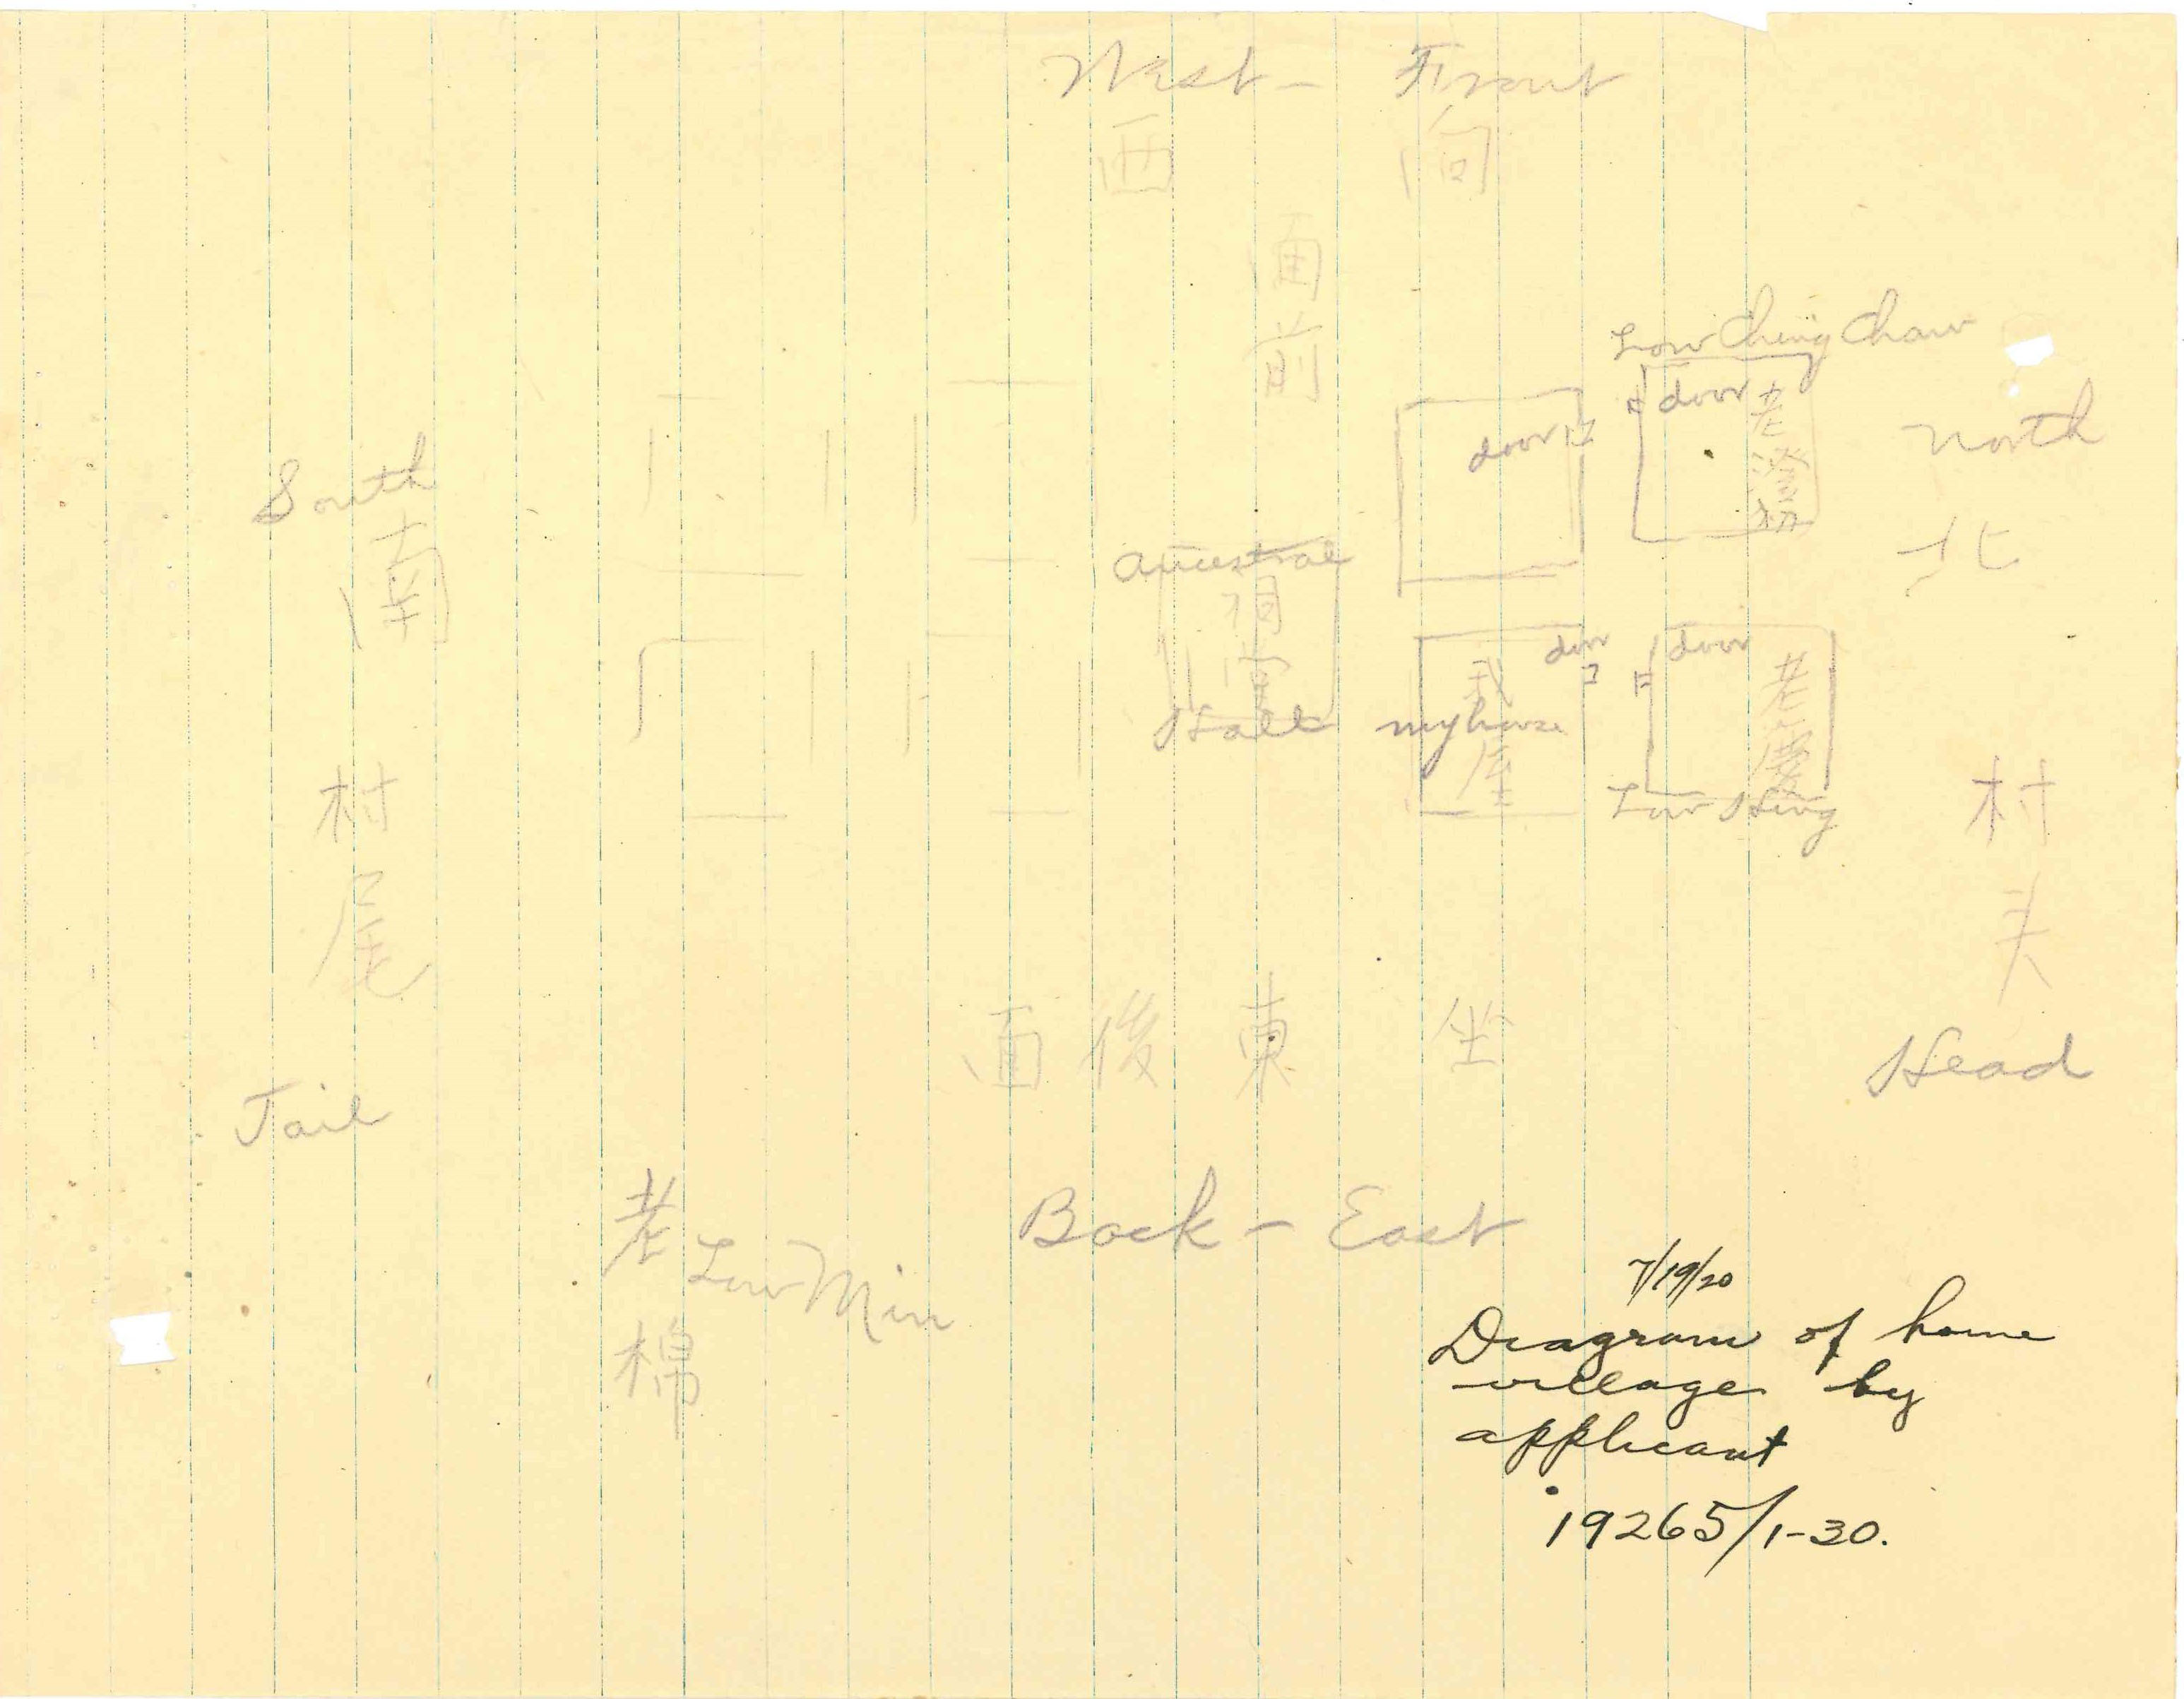 West - Front
西 向
面前
Low Ching Chaw
door
老澄
door
North
北
South
南
Ancestral
祠堂
Hall
door
我屋
my house
door
老慶
Low Hing
村尾
Tail
村夫
Head
面 後 東 坐
Back - East
老棉
Low Min
7/19/20
Diagram of home
village by
applicant
19265/1-30.